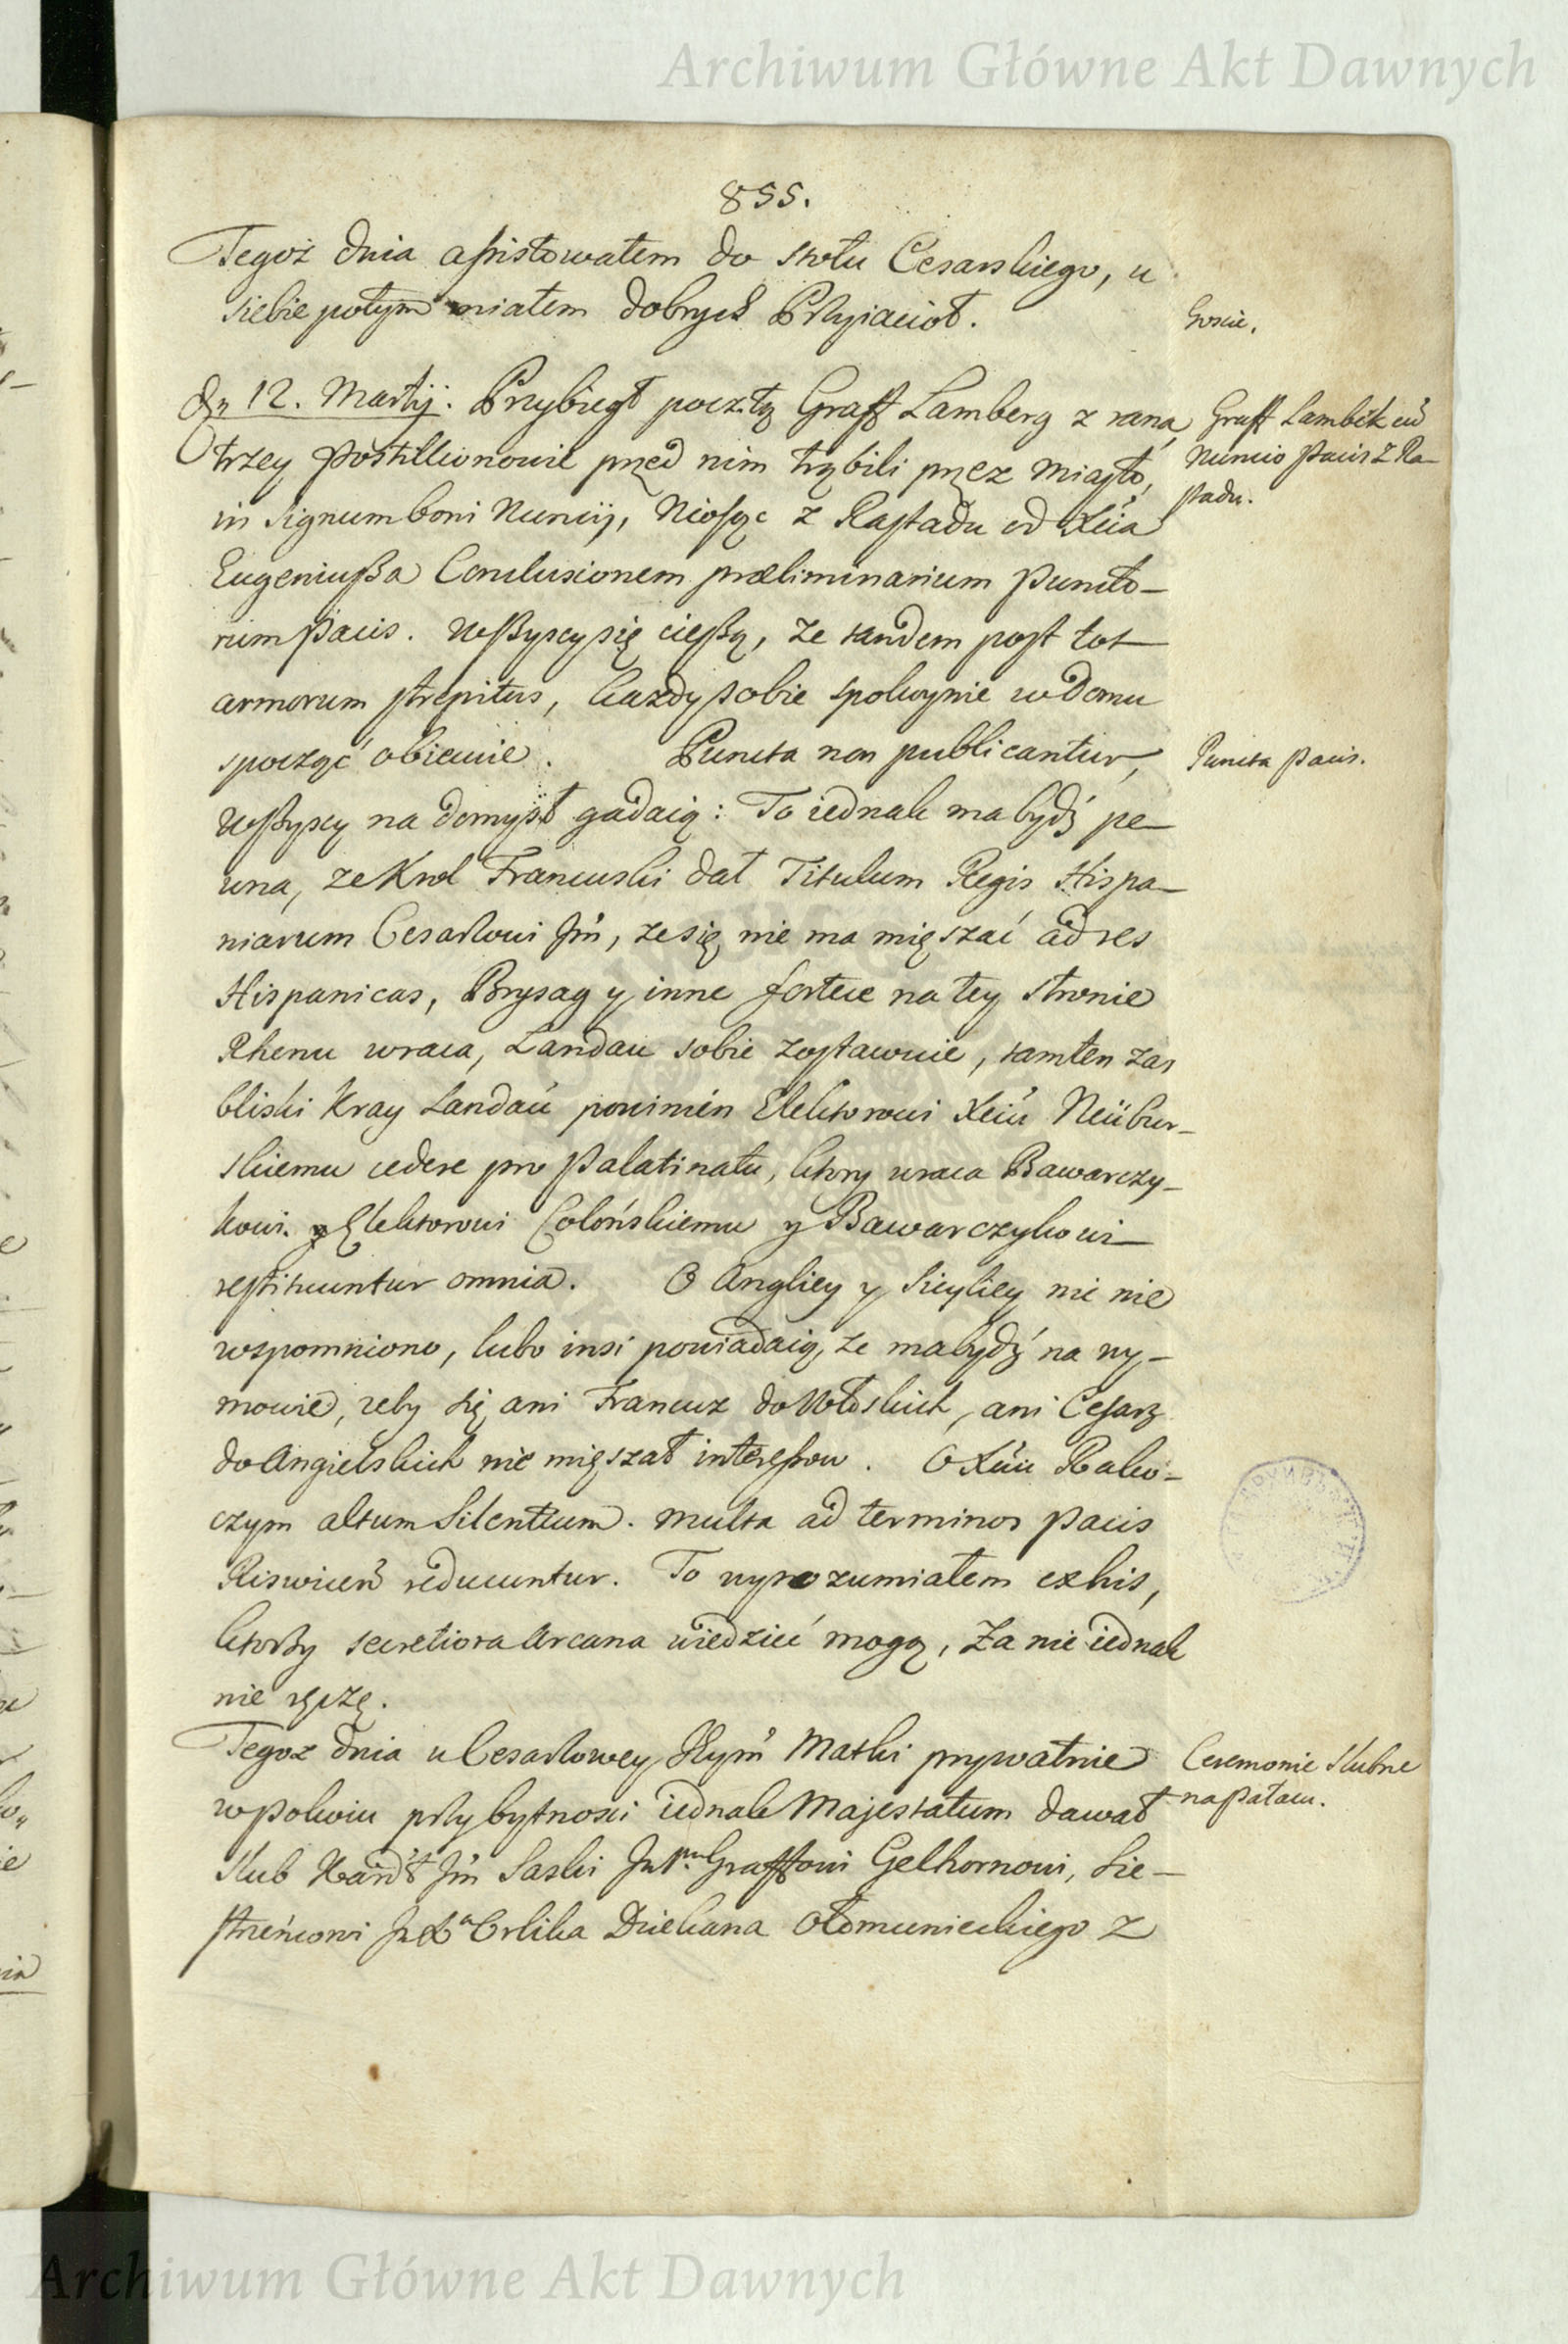 Archiwum Główne Akt Dawnych
855.
Tegoż dnia assistowałem do stołu Cesarskiego, u
siebie potym miałem dobrych Przyiacioł.
Goscie.
Dn 12. Martij. Przybiegł pocztą Graff Lamberg z rana,
trzey postillionowie przed nim trąbili przez miasto,
in signum boni Nuncij, Niosąc z Rastadu od Xcia
Eugeniusza Conclusionem præliminarium puncto-
rum pacis. Wszyscy się cieszą, ze tandem post tot
armorum strepitus, kazdy sobie spokoynie w domu
spocząć obiecuie. Puncta non publicantur,
wszyscy na domysł gadaią: To iednak ma bydź pe-
wna, ze Krol Francuski dał Titulum Regis Hispa-
niarum Cesarzowi Jm, ze się nie ma mięszać ad res
Hispanicas, Brysag y inne fortece na tey stronie
Rhenu wraca, Landau sobie zostawuie, tamten zas
bliski Kray Landau powinien Elektorowi Xciu Neübur-
skiemu cedere pro Palatinatu, ktory wraca Bawarczy-
kowi. y Elektorowi Colońskiemu y Bawarczykowi
restituuntur omnia. O Angliey y Sicyliey nic nie
wspomniono, lubo insi powiadaią, ze ma bydź na wy-
mowie, zeby się ani Francuz do Włoskich, ani Cesarz
do Angielskich nie mięszał interessow. O Xciu Rako-
czym altum Silentium. multa ad terminos pacis
Riswicen reducuntur. To wyrozumiałem ex his,
ktorzy secretiora Arcana wiedzieć mogą, Za nic iednak
nie ręczę.
Graff Lambek cu
nuncio pacis z Ra-
stadu.
Puncta pacis.
Tegoz dnia u Cesarzowey Jeym Matki prywatnie
w pokoiu przy bytnosci iednak Majestatum dawał
slub Kard: Jm Saski Graffowi Gelhornowi, Sie-
strzeńcowi Orlika Dziekana Ołomunieckiego z
Ceremonie slubne
na pałacu.
Archiwum Główne Akt Dawnych